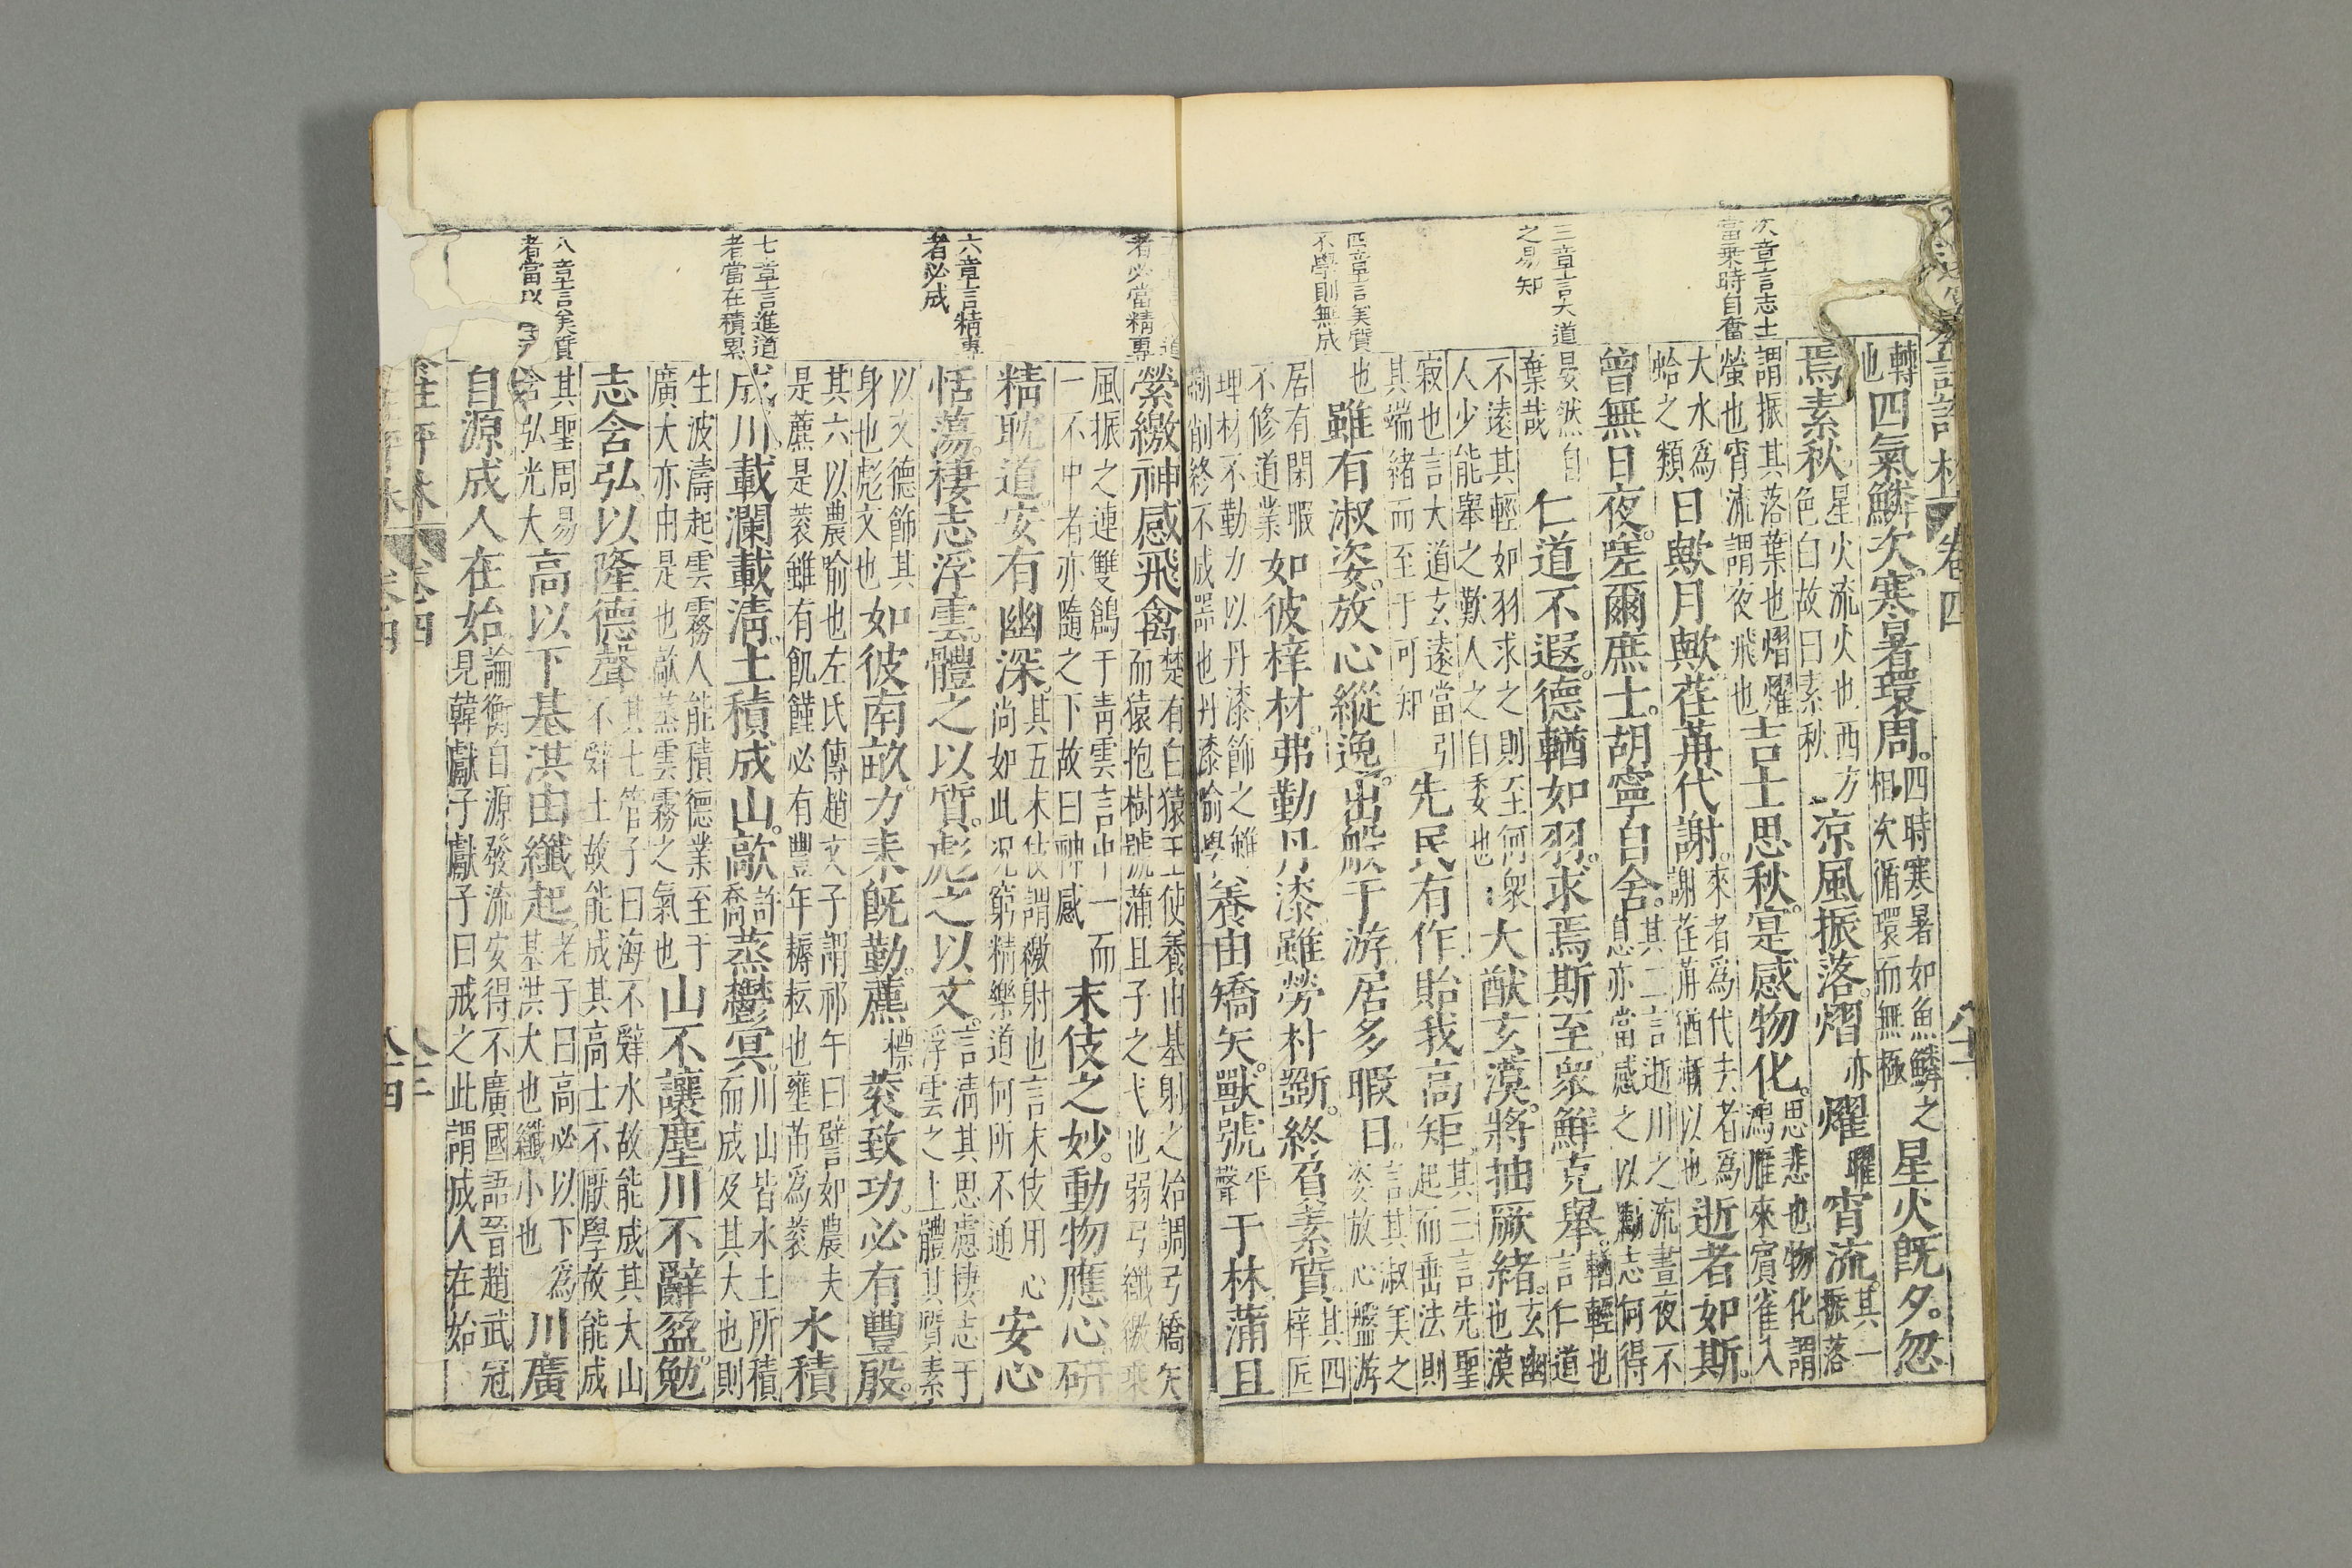 次章言志士
當乘時自奮
三章言大道
之易知
四章言美質
不學則無成
卷四
轉四氣鱗次寒暑環周四時寒暑如魚鱗之相次循環而無極星火既夕忽
焉素秋星火流火也西方色白故曰素秋凉風振落熠亦燿曜宵流其一振落
謂振其落葉也熠燿螢也宵流謂夜飛也吉士思秋寔感物化思悲也物化謂鴻雁來賓雀入
大水為蛤之類日歟月歟荏苒代謝來者為代去者為謝荏苒猶漸以也逝者如斯
曾無日夜嗟爾庶士胡寧自舍其二言逝川之流晝夜不息亦當感之以勵志何得
晏然自棄哉仁道不遐德輶如羽求焉斯至衆鮮克舉輶輕也言仁道
不遠其輕如羽求之則至何衆人少能舉之歎人之自委也大猷玄漠將抽厥緒玄幽也漠
寂也言大道玄遠當引其端緒而至于可知先民有作貽我高矩其三言先聖起而垂法則
也雖有淑姿放心縱逸出般于游居多暇日言其淑美之姿放心盤游
居有閑暇不修道業如彼梓材弗勤丹漆雖勞朴斲終負素質其四梓匠
理材不勤力以丹漆飾之雖斲削終不成器也丹漆喻學養由矯矢獸號平聲于林蒲且
者必當精專
六章言精專
者必成
七章言進道
者當在積累
八章言美質
者當以
縈繳神感飛禽楚有白猿王使養由基射之始調弓矯矢而猿抱樹號蒲且子之弋也弱弓纖繳乘
風振之連雙鶬于青雲言中一而一不中者亦隨之下故曰神感末伎之妙動物應心研
精耽道安有幽深其五末伎謂繳射也言末伎用心尚如此况窮精樂道何所不通安心
恬蕩棲志浮雲體之以質彪之以文言清其思慮棲志于浮雲之上體其質素
以文德飾其身也彪文也如彼南畝力耒既勤藨標蔉致功必有豐殷
其六以農喻也左氏傳趙文子謂祁午曰譬如農夫是藨是蔉雖有飢饉必有豐年耨耘也壅苗為蔉水積
成川載瀾載清土積成山歊許喬蒸鬱冥川山皆水土所積而成及其大也則
生波濤起雲霧人能積德業至于廣大亦由是也歊蒸雲霧之氣也山不讓塵川不辭盈勉
志含弘以隆德聲其七管子曰海不辭水故能成其大山不辭土故能成其高士不厭學故能成
其聖周易含弘光大高以下基洪由纖起老子曰高必以下為基洪大也纖小也川廣
自源成人在始論衡曰源發流安得不廣國語晉趙武冠見韓獻子獻子曰戒之此謂成人在始